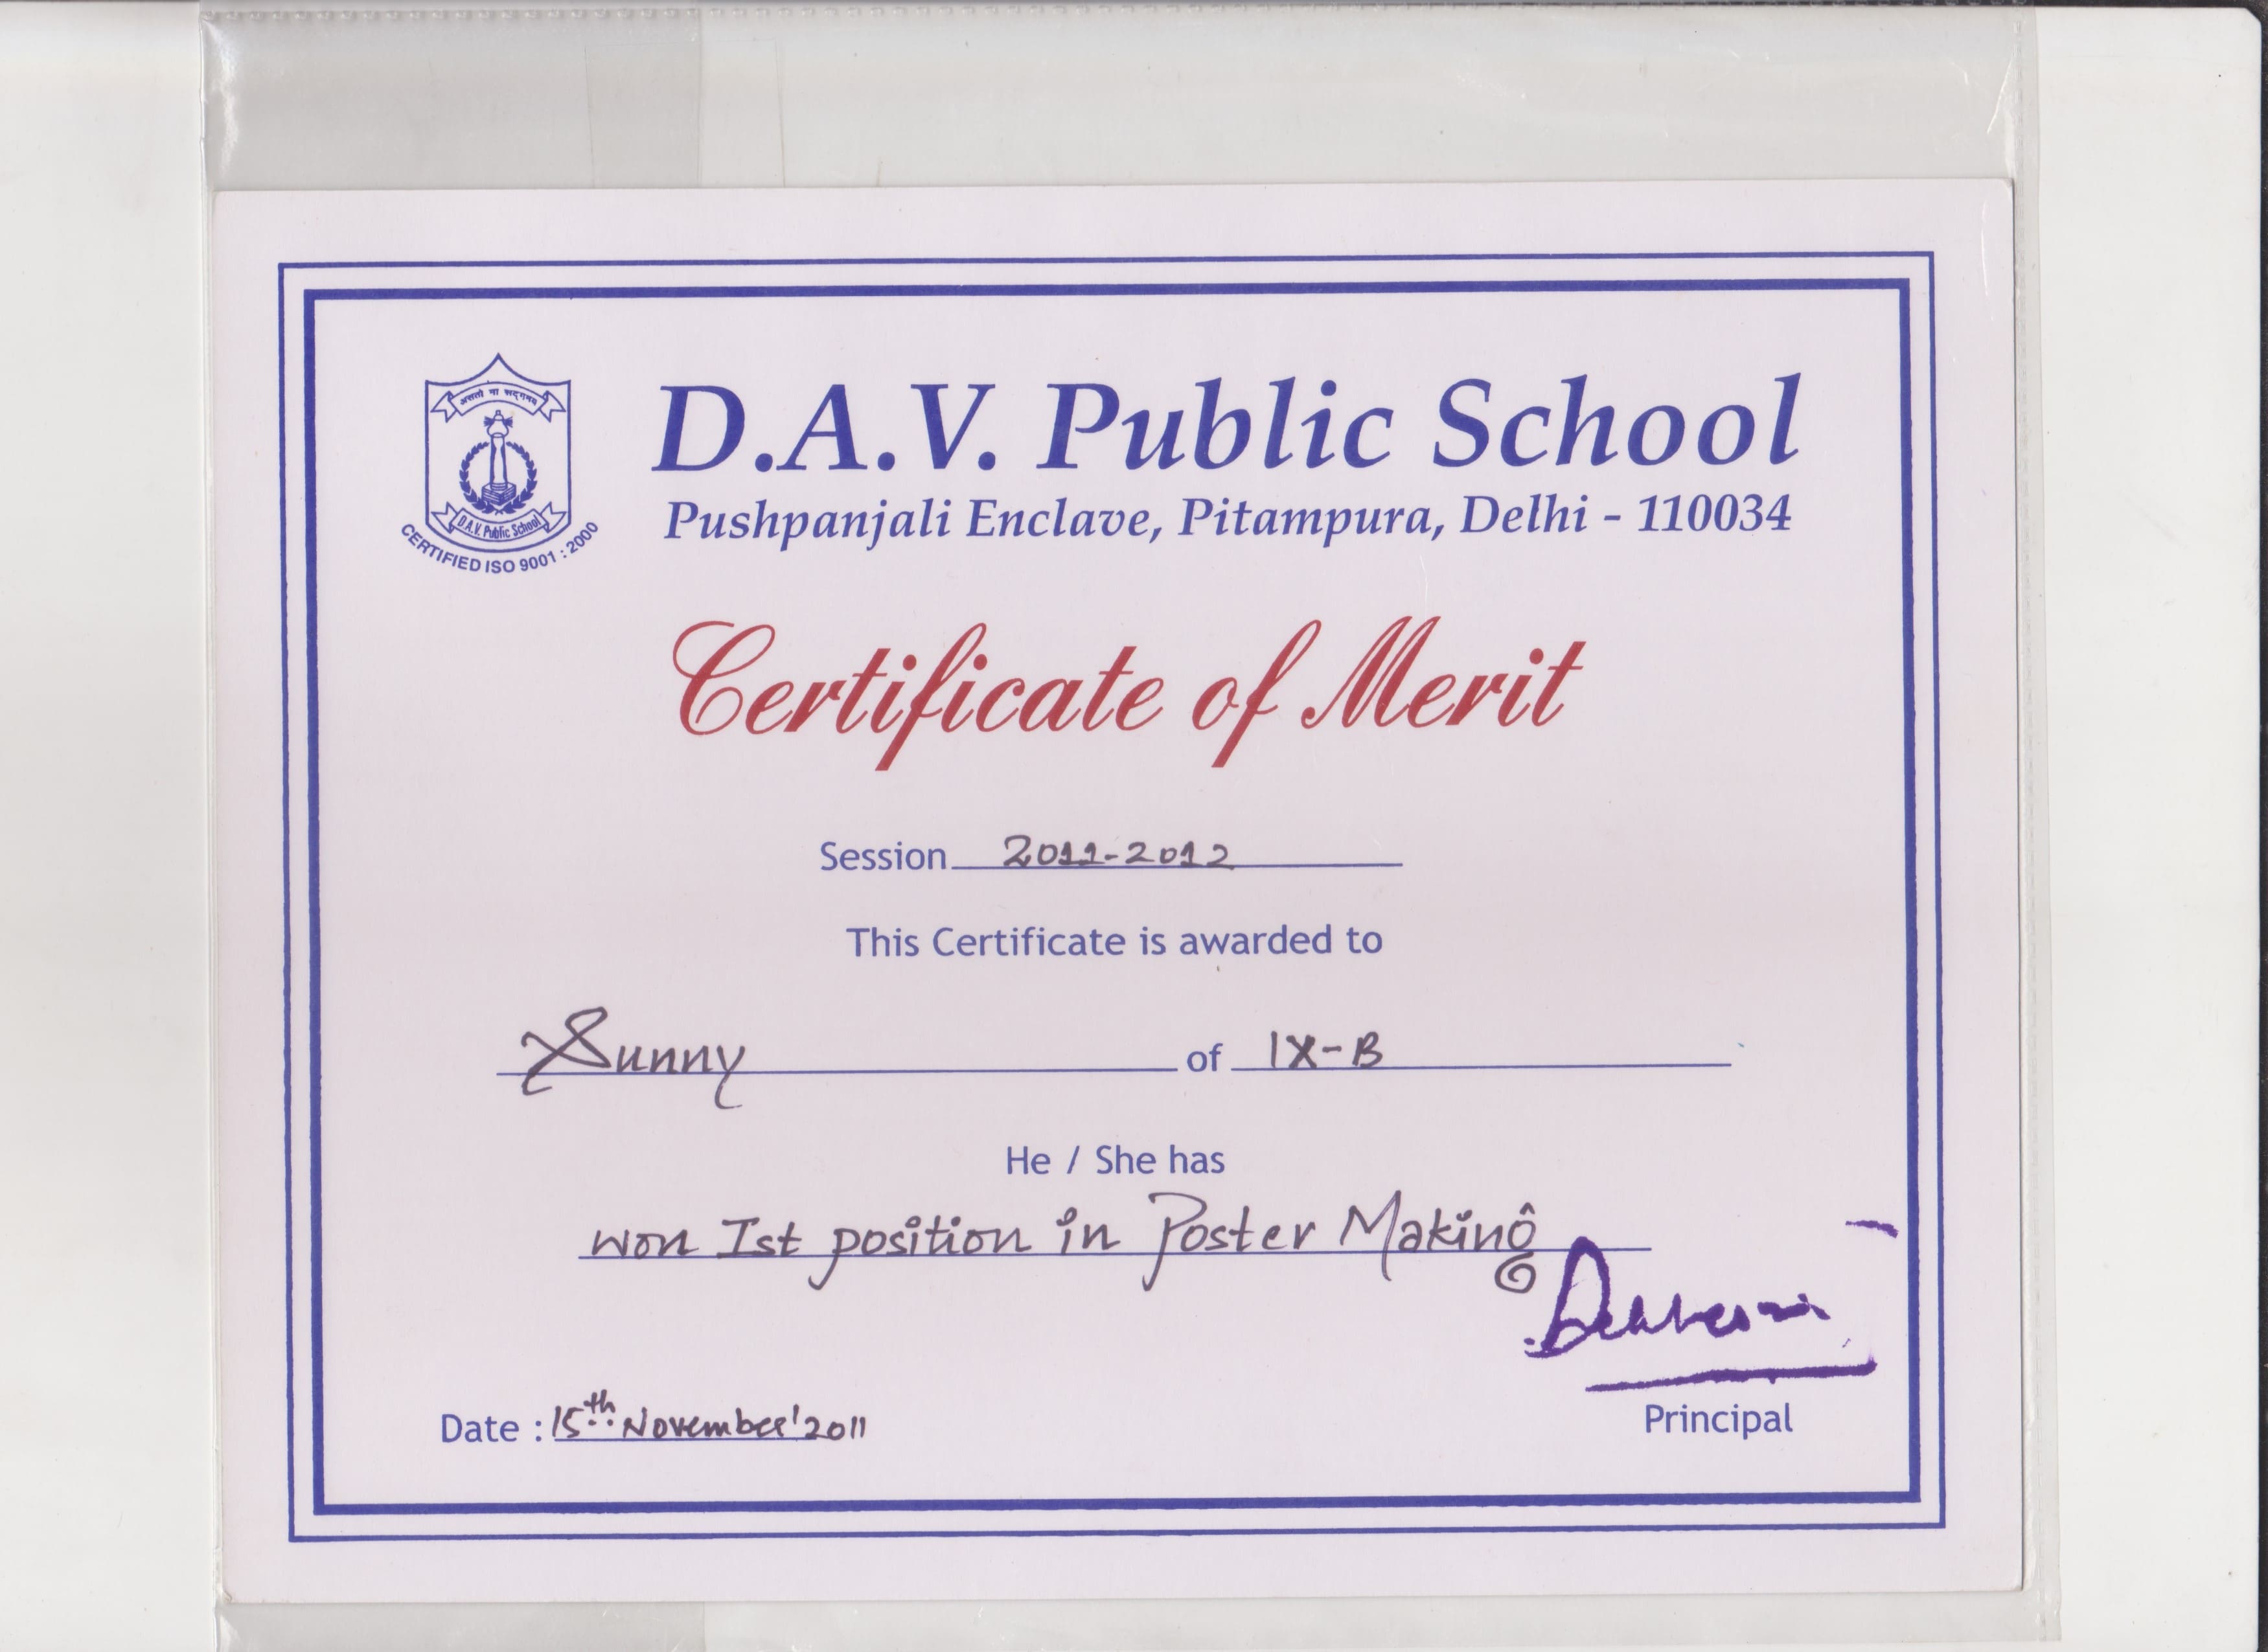 असतो मा सद्गमय
D.A.V. Public School
CERTIFIED ISO 9001 : 2000
D.A.V. Public School
Pushpanjali Enclave, Pitampura, Delhi - 110034
Certificate of Merit
Session 2011-2012
This Certificate is awarded to
Sunny of IX-B
He / She has
won Ist position in Poster Making
Date : 15th November'2011
Principal